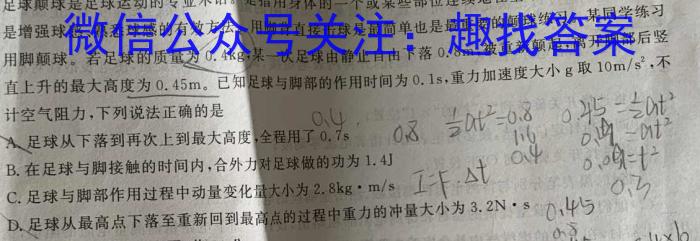 足球颠球是足球运动的专业术语。是指用身体的一个或某些部位连续地
是增强球 的有效方法。用脚 直接 球是最简单也是 的颠球练习。某同学练习
微信公众号关注：趣找答案
用脚颠球。若足球的质量为0.4kg,某一次足球由静止自由下落0.8m 被重新颠起,离开脚部后竖
直上升的最大高度为0.45m。已知足球与脚部的作用时间为0.1s,重力加速度大小g取10m/s²,不
计空气阻力,下列说法正确的是
A. 足球从下落到再次上到最大高度,全程用了0.7s
B. 在足球与脚接触的时间内,合外力对足球做的功为1.4J
C. 足球与脚部作用过程中动量变化量大小为2.8kg·m/s
D. 足球从最高点下落至重新回到最高点的过程中重力的冲量大小为3.2N·s
0.4
0.8
½at²=0.8
1.6
0.4
0.45=½at²
I=F·Δt
0.3
0.45
0.8